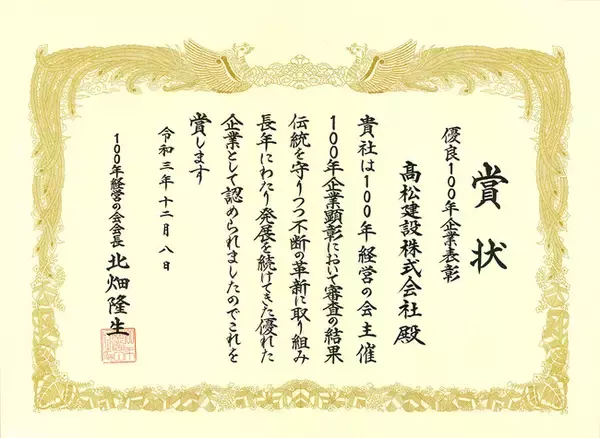 賞状
優良100年企業表彰
髙松建設株式会社殿
貴社は100年経営の会主催
100年企業顕彰において審査の結果
伝統を守りつつ不断の革新に取り組み
長年にわたり発展を続けてきた優れた
企業として認められましたのでこれを
賞します
令和三年十二月八日
100年経営の会会長 北畑隆生